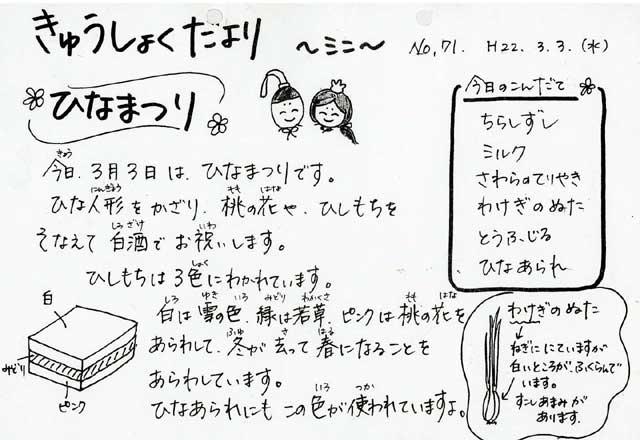 きゅうしょくだより ～ミニ～ No.71. H22.3.3.(水)
ひなまつり
今日のこんだて
ちらしずし
ミルク
さわらのてりやき
わけぎのぬた
とうふじる
ひなあられ
きょう
今日、3月3日は、ひなまつりです。
にんぎょう もも はな
ひな人形をかざり、桃の花や、ひしもちを
しろざけ いわ
そなえて 白酒でお祝いします。
しょく
ひしもちは3色にわかれています。
しろ ゆき いろ みどり わかくさ もも はな
白は雪の色、緑は若草、ピンクは桃の花を
ふゆ さ はる
あらわして、冬が去って春になることを
あらわしています。
いろ つか
ひなあられにもこの色が使われていますよ。
白
みどり
ピンク
わけぎのぬた
ねぎににていますが
白いところが、ふくらんで
います。
すこしあまみが
あります。